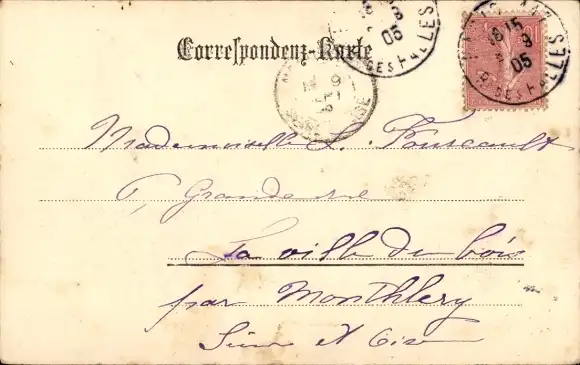 Correspondenz-Karte
18 15
9
05
R. DES HALLES
Mademoiselle L. Foucault
7, Grande rue
La ville du bois
par Monthlery
Seine et Oise